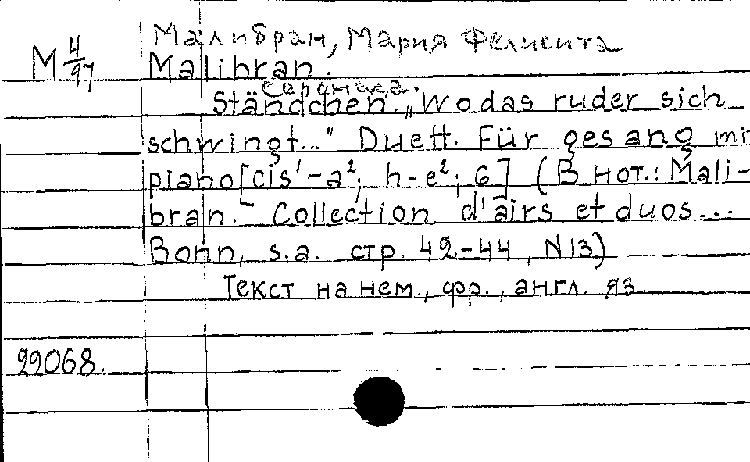 Малибран, Мария Фелисита
М 4/97 Malibran.
Серенада.
Ständchen. „Wo das ruder sich
schwingt..." Duett. Für gesang mit
piano [cis¹-a²; h-e²; G] (В нот.: Mali-
bran. - Collection d'airs et duos...
Bonn, s.a. стр. 42-44, N13)
Текст на нем., фр., англ. яз
22068.